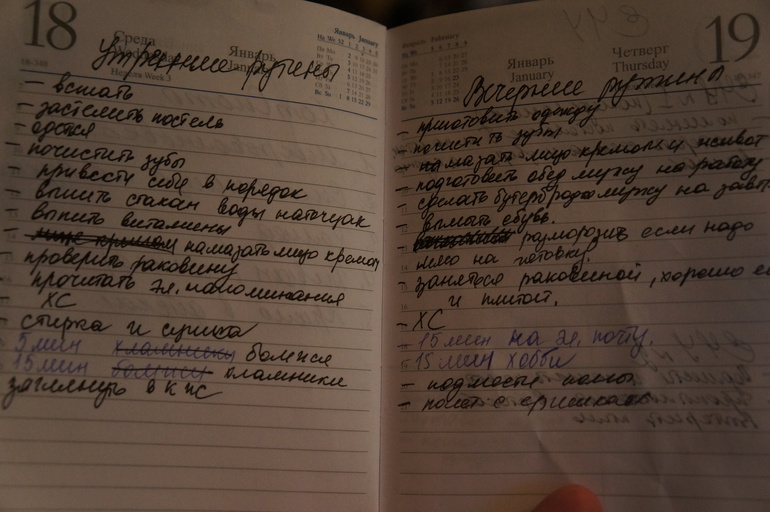 18
Среда
Wednesday
Январь
January
Неделя Week 3
Январь January
Утренние рутины
— встать
— застелить постель
— одется
— почистить зубы
— привести себя в порядок
— выпить стакан воды натощак
— выпить витамины
— намазать лицо кремом
— проверить раковину
— прочитать эл. напоминания
— ХС
— стирка и сушка
5 мин хламники болтся
15 мин хламники
загляну в К ПС
19
Январь
January
Четверг
Thursday
Февраль February
Вечерние рутины
— приготовить одежду
— почистить зубы
— намазать лицо кремом и живот
— подготовить обед мужу на работу
— сделать бутерброда мужу на завт
— вымыть обувь.
— разморозить если надо
мясо на готовку.
— заняться раковиной, хорошо ею
и плитой.
— ХС
— 15 мин на эл. почту.
— 15 мин хобби
— подмости полы